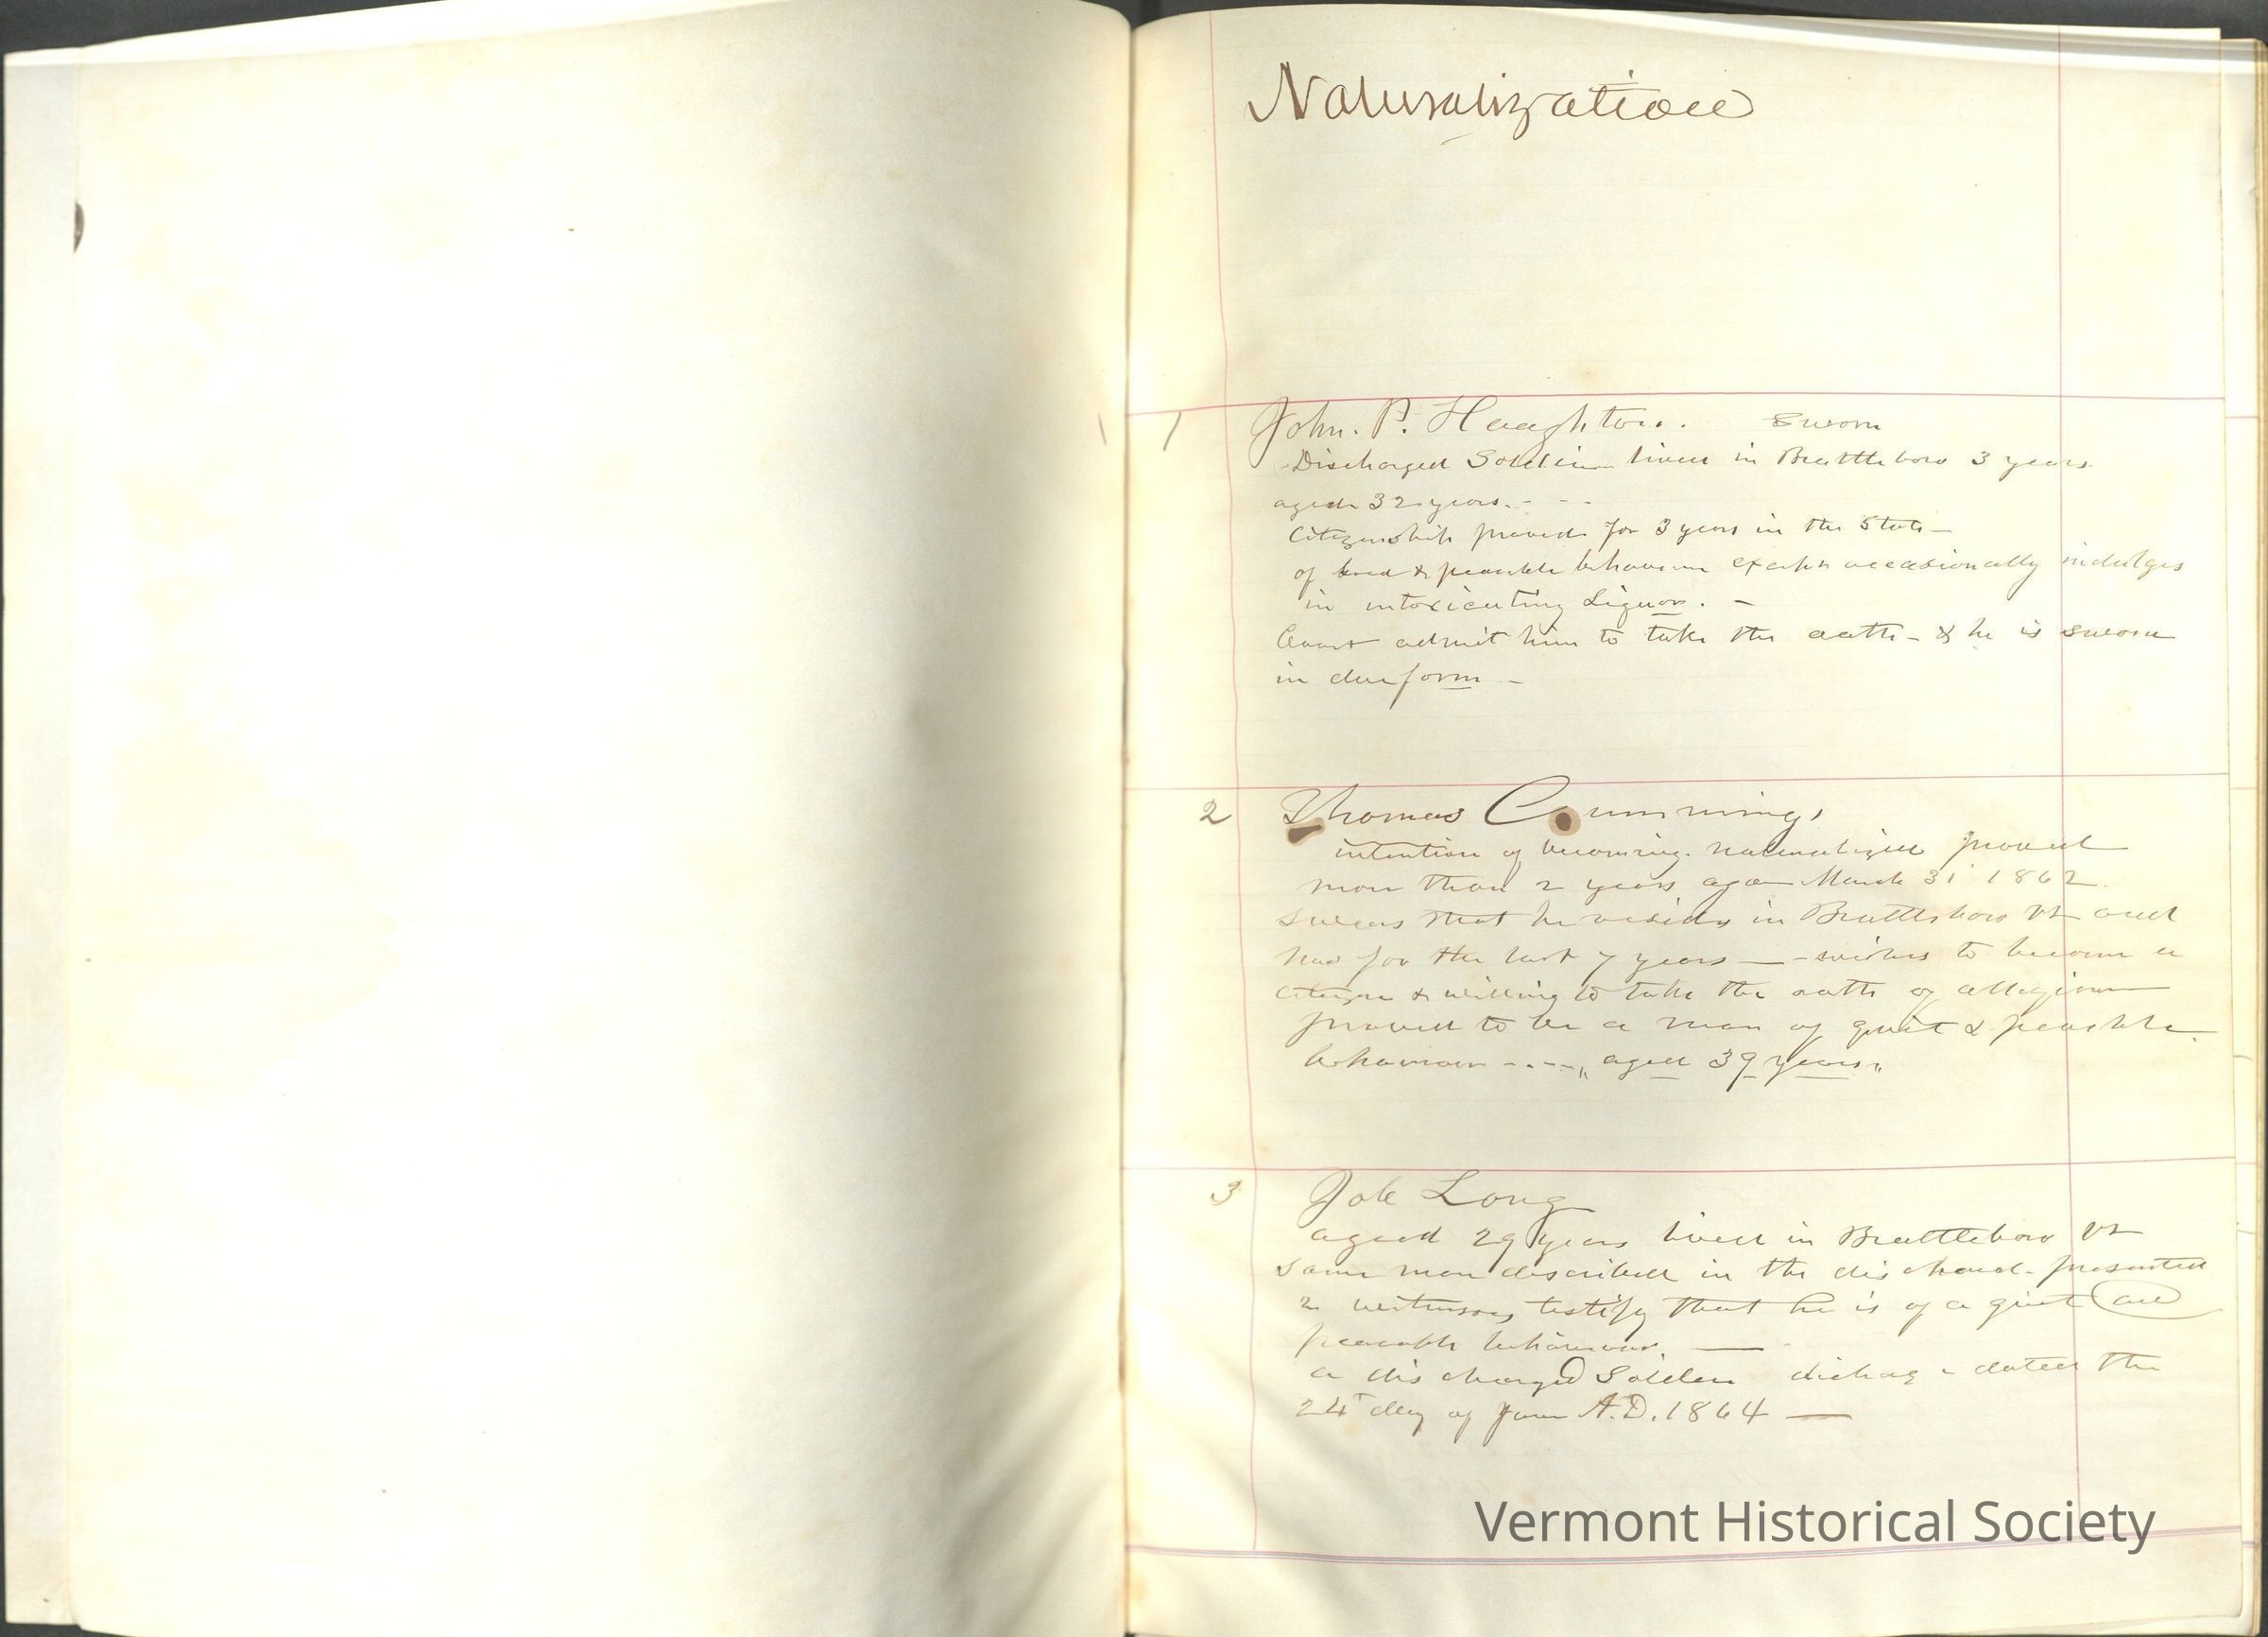 Naturalization
1 John. P. Haughton. Sworn
Discharged Soldier lived in Brattleboro 3 years
aged 32 years. - - -
Citizenship proved for 3 years in the State -
of & peaceble behaviour except occasionally indulges
in intoxicating Liquor. -
Court admit him to take the oath - & he is sworn
in due form -
2 Thomas Cummings
intention of becoming naturalized proved
more than 2 years ago March 31 1862
swears that he resides in Brattleboro Vt and
has for the last 7 years - wishes to become a
citizen & willing to take the oath of allegiance
proved to be a man of quiet & peaceble
behaviour - - - - „ aged 39 years „
3 Job Long
aged 29 years lived in Brattleboro Vt
same man described in the presented
2 witnesses testify that he is of a quiet and
peaceable behaviour. —
a discharged Soldier dated the
24 day of A.D. 1864 —
Vermont Historical Society